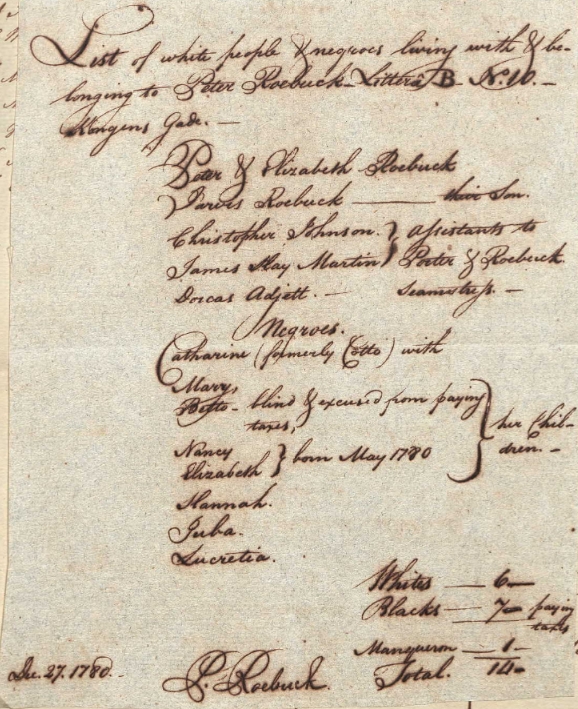 List of white people & negroes living with & be-
longing to Peter Roebuck - Littera B N: 10. -
Kongens Gade. -
Peter & Elizabeth Roebuck
Jarvis Roebuck — their Son.
Christopher Johnson. } assistants to
James Hay Martin } Peter & Roebuck
Dorcas Adjett. - Seamstress. -
Negroes.
Catharine (formerly Cotto) with
Mary,
Betto - blind & excused from paying
taxes,
Nancy
Elizabeth } born May 1780 } her Chil-
dren. -
Hannah.
Juba.
Lucretia.
Whites — 6 —
Blacks — 7 — paying
taxes
Manqueron — 1 -
Total. 14 -
Dec. 27. 1780. P. Roebuck.